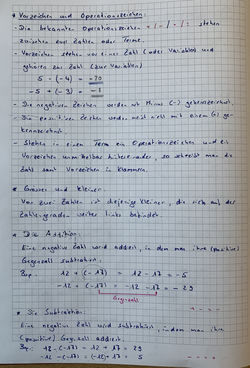 * Vorzeichen und Operationszeichen:
- Die bekannten Operationszeichen + / - / · / : stehen
zwischen zwei Zahlen oder Terme.
- Vorzeichen stehen vor einer Zahl (oder Variablen) und
gehören zur Zahl (zur Variablen)
5 · (-4) = -20
-5 + (-3) =
- Die negativen Zeichen werden mit Minus (-) gekennzeichnet.
- Die positiven Zeichen werden meist nicht mit einem (+) ge-
kennzeichnet.
- Stehen in einem Term ein Operationszeichen und ein
Vorzeichen unmittelbar hintereinander, so schreibt man die
Zahl samt Vorzeichen in Klammern.
* Grösser und Kleiner:
Von zwei Zahlen ist diejenige kleiner, die sich auf der
Zahlengeraden weiter links befindet.
* Die Addition:
Eine negative Zahl wird addiert, in dem man ihre (positive)
Gegenzahl subtrahiert:
Bsp: 12 + (-17) = 12 - 17 = -5
-12 + (-17) = -12 - 17 = -29
Gegenzahl
* Die Subtraktion:
Eine negative Zahl wird subtrahiert, indem man ihre
(positive) Gegenzahl addiert.
Bsp: 12 - (-17) = 12 + 17 = 29
-12 - (-17) = (-12) + 17 = 5